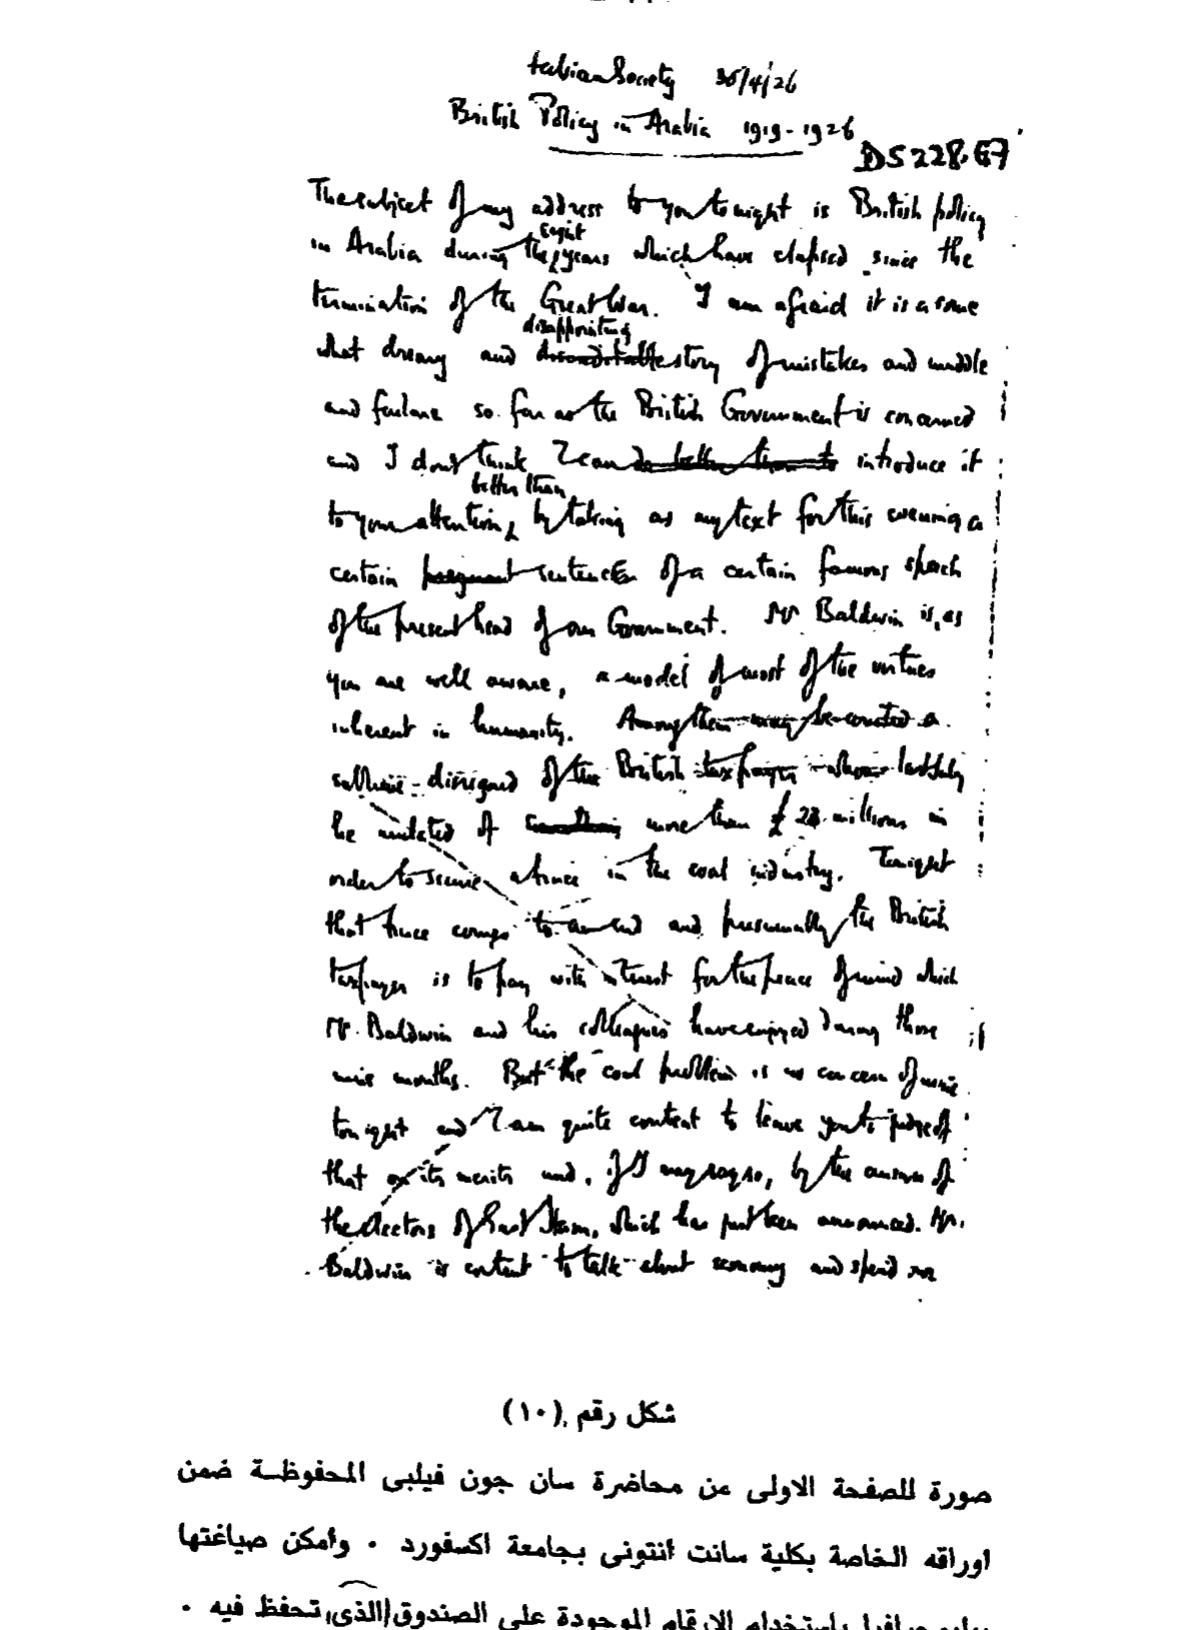 Fabian Society 30/4/26
British Policy in Arabia 1919-1926
DS228.G7
The subject of my address to you tonight is British policy
eight
in Arabia during the years which have elapsed since the
termination of the Great War. I am afraid it is a some
disappointing
what dreary and discreditable story of mistakes and muddle
and failure so far as the British Government is concerned
and I don't think I can do better than to introduce it
better than
to your attention by taking as my text for this evening a
certain pregnant sentence of a certain famous speech
of the present head of our Government. Mr Baldwin is, as
you are well aware, a model of most of the virtues
inherent in humanity. Among them may be counted a
sublime disregard of the British taxpayer whom last July
he mulcted of more than £ 23 millions in
order to secure a truce in the coal industry. Tonight
that truce comes to an end and presumably the British
taxpayer is to pay with interest for the peace of mind which
Mr. Baldwin and his colleagues have enjoyed during those
nine months. But the coal problem is no concern of mine
tonight and I am quite content to leave you to judge of
that on its merits and, if I may say so, by the answer of
the electors of East Ham, which has just been announced. Mr.
Baldwin is content to talk about economy and spend
شكل رقم (١٠)
صورة للصفحة الاولى من محاضرة سان جون فيلبى المحفوظة ضمن
اوراقه الخاصة بكلية سانت انتونى بجامعة اكسفورد . وأمكن صياغتها
باستخدام الارقام الموجودة على الصندوق الذى تحفظ فيه .